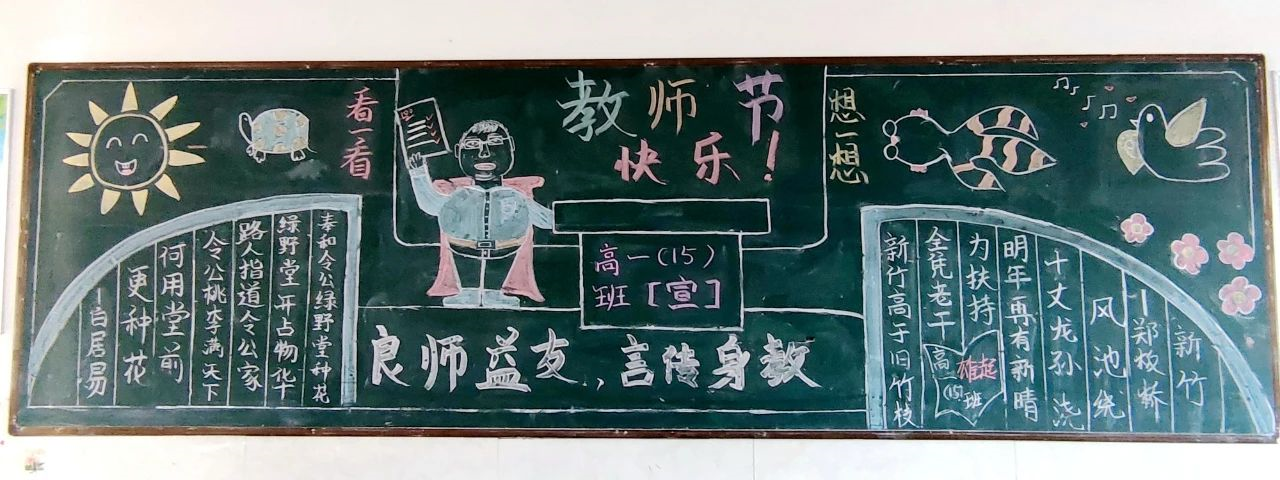 教师节
快乐！
看一看
想一想
奉和令公绿野堂种花
绿野堂开占物华
路人指道令公家
令公桃李满天下
何用堂前
更种花
—白居易
高一（15）
班［宣］
良师益友，言传身教
新竹高于旧竹枝
全凭老干
为扶持
明年再有新晴
十丈龙孙浇
风池绕
—郑板桥
新竹
高
(15)班